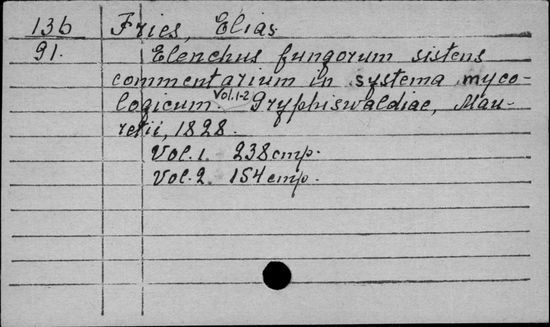 136 Fries, Elias
91. Elenchus fungorum sistens
commentarium in systema myco-
logicum. Vol.1-2 Gryphiswaldiae, Mau-
retii, 1828.
Vol.1. 238 стр.
Vol.2. 154 стр.